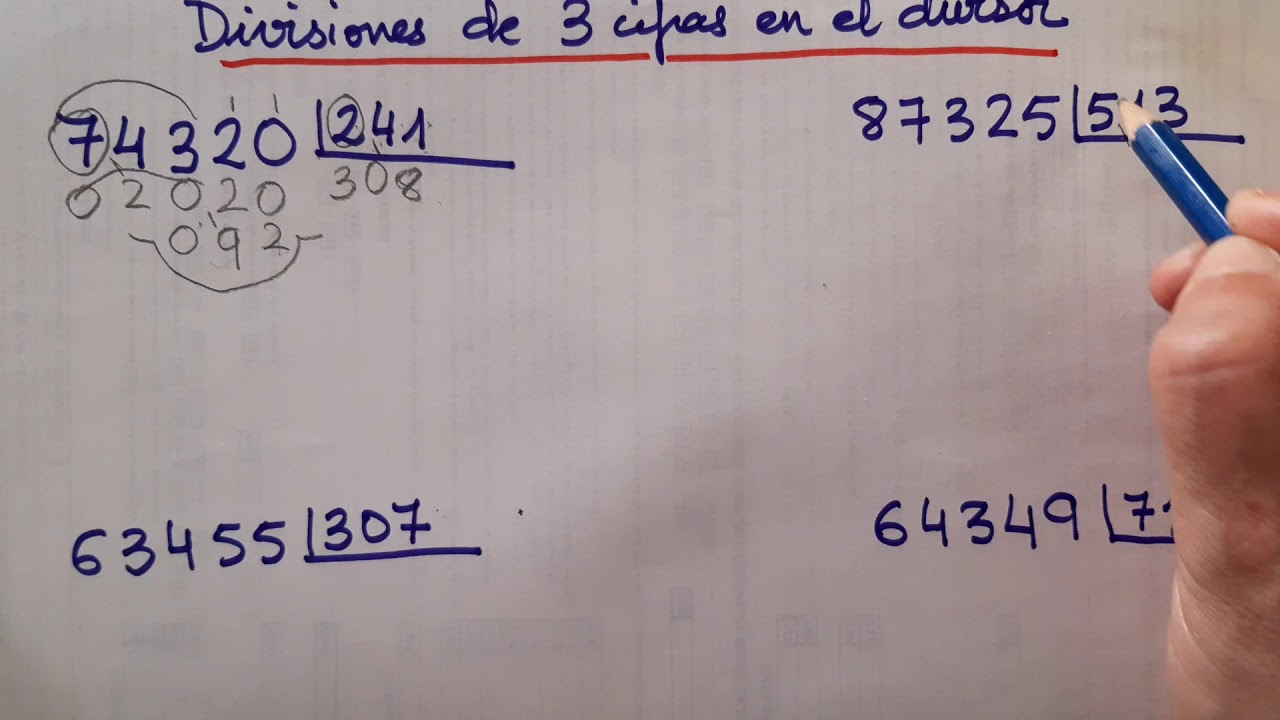 Divisiones de 3 cifras en el divisor
74320 241
02020 308
092
87325 5 3
63455 307
64349 7